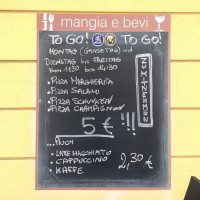 mangia e bevi
To Go! To Go!
MONTAG (GANZTAG) und
DIENSTAG bis FREITAG
von 11:30 bis 14:30
• PIZZA MARGHERITA
• PIZZA SALAMI
• PIZZA SCHINKEN
• PIZZA CHAMPIGNON
ZUMITNEHMEN
5 € !!!
...AUCH
• LATTE MACCHIATO
• CAPPUCCINO 2,30 €
• KAFFE